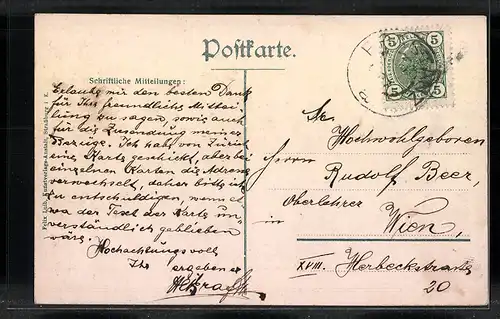 Postkarte.
Schriftliche Mitteilungen:
Erlaube mir den besten Dank
für Ihre freundliche Mittei-
lung zu sagen, sowie auch
für die Zusendung meiner
Bezüge. Ich hab von Zürich
eine Karte geschickt, aber bei
einzelnen Karten die Adresse
verwechselt, daher bitte ich
zu entschuldigen, wenn et-
wa der Text der Karte un-
verständlich geblieben
wäre.
Hochachtungsvoll
Ihr ergebener
5
5
5
5
Sr.
Hochwohlgeboren
Herrn
Rudolf Beer,
Oberlehrer
in Wien,
XVIII. Herbeckstrasse
20
Felix Luib, Kunstverlags-Anstalt, Strassburg i. E.